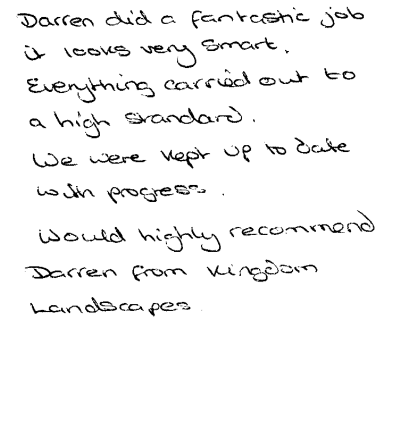 Darren did a fantastic job
it looks very smart.
Everything carried out to
a high standard.
We were kept up to date
with progress.
Would highly recommend
Darren from Kingdom
Landscapes